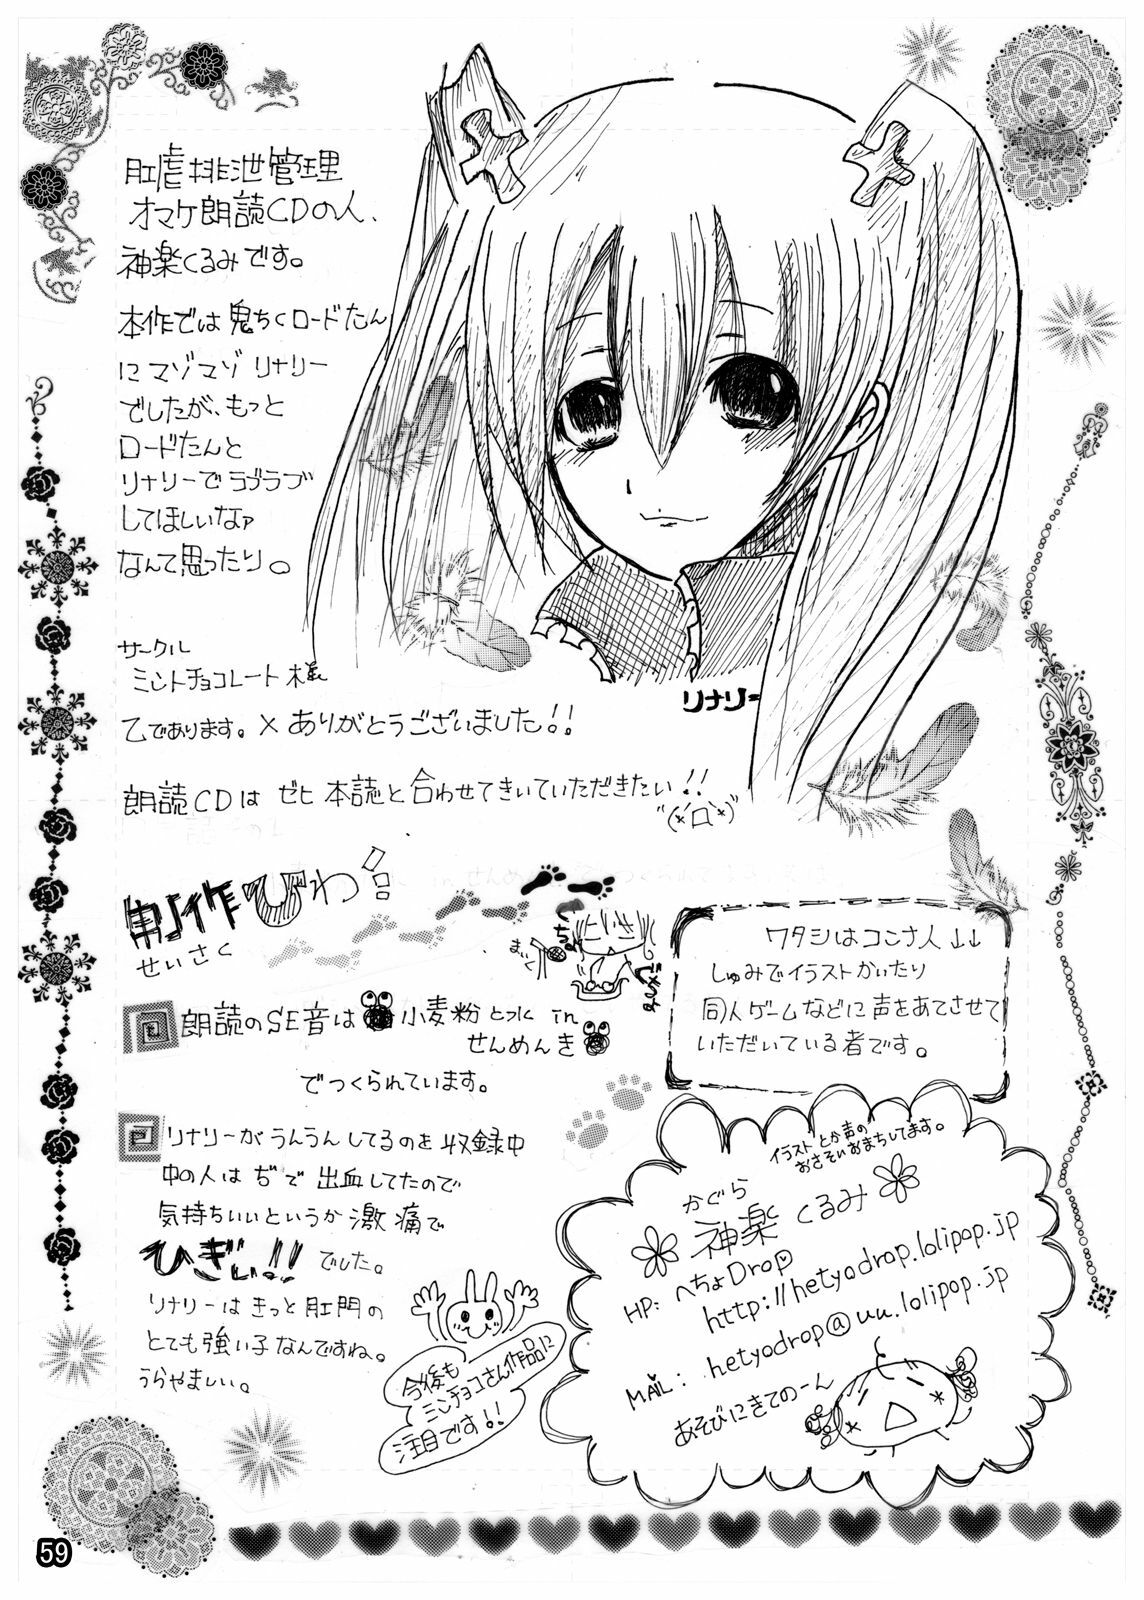 肛虐排泄管理
オマケ朗読CDの人、
神楽くるみです。
本作では鬼ちくロードたん
にマゾマゾリナリー
でしたが、もっと
ロードたんと
リナリーでラブラブ
してほしいなァ
なんて思ったり。
サークル
ミントチョコレート様
乙であります。×ありがとうございました!!
朗読CDはゼヒ本誌と合わせてきいていただきたい!!
リナリー
制作ひわ
せいさく
まいく
朗読のSE音は小麦粉とつば in
せんめんき
でつくられています。
リナリーがうんうんしてるのを収録中
中の人はぢで出血してたので
気持ちいいというか激痛で
ひぎぃ!! でした。
リナリーはきっと肛門の
とても強い子なんですね。
うらやましい。
今後も
ミンチョコさん作品に
注目です!!
ワタシはコンナ人↓↓
しゅみでイラストかいたり
同人ゲームなどに声をあてさせて
いただいている者です。
イラストとか声の
おさそいおまちしてます。
かぐら
神楽くるみ
HP: へちょDrop
http://hetyodrop.lolipop.jp
MAIL: hetyodrop@uu.lolipop.jp
あそびにきてのーん
59